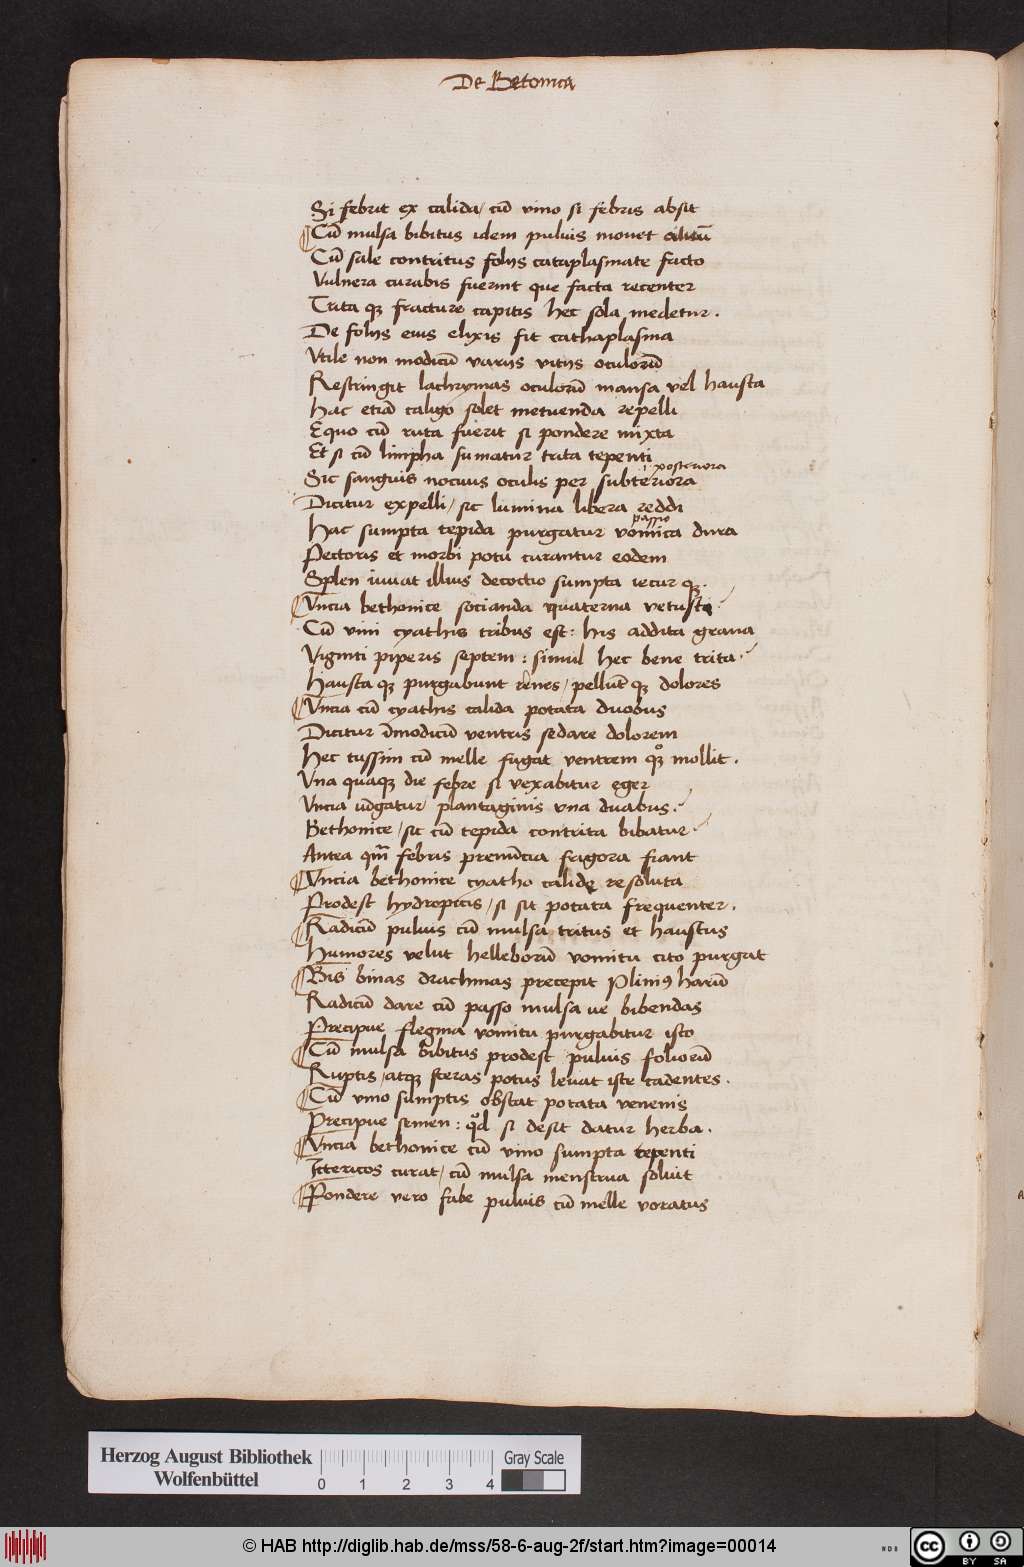 De Betonica
Si febrit ex calida / cū vino si febris absit
Cū mulsa bibitus idem puluis mouet aluū
Cū sale contritus folijs cataplasmate facto
Vulnera curabis fuerint que facta recenter
Trita qꝫ fracture capitis hec sola medetur.
De folijs eius elixis fit cathaplasma
Vtile non modicū varijs vitijs oculorū
Restringit lachrymas oculorū mansa vel hausta
Hac etiā caligo solet metuenda repelli
Equo cū ruta fuerit si pondere mixta
Et si cū limpha sumatur trita tepenti
posteriora
Sic sanguis nociuus oculis per subteriora
Dicitur expelli / sic lumina libera reddi
passio
Hac sumpta tepida purgatur vomica dura
Pectoris et morbi potu curantur eodem
Splen iuuat illius decoctio sumpta iecur qꝫ.
Vncia bethonice socianda quaterna vetusti
Cū vini cyathis tribus est: his addita grana
Viginti piperis septem: simul hec bene trita
Hausta qꝫ purgabunt renes / pellūt qꝫ dolores
Vncia cū cyathis calida potata duobus
Dicitur īmodicū ventris sedare dolorem
Hec tussim cū melle fugat ventrem qꝫ mollit.
Vna quaqꝫ die febre si vexabitur ęger
Vncia iūgatur plantaginis vna duabus.
Bethonice / sic cū tepida contrita bibatur
Antea qm̄ febris prenūcia frigora fiant
Vncia bethonice cyatho calidę resoluta
Prodest hydropicis / si sit potata frequenter.
Radicū puluis cū mulsa tritus et haustus
Humores velut helleborū vomitu cito purgat
Bis binas drachmas precepit Pliniꝰ harū
Radicū dare cū passo mulsa ue bibendas
Precipue flegma vomitu purgabitur isto
Cū mulsa bibitus prodest puluis foliorū
Ruptis / atqꝫ steras potus leuat iste cadentes.
Cū vino sumptis obstat potata venenis
Precipue semen: qd si desit datur herba.
Vncia bethonice cū vino sumpta tepenti
Ictericos curat / cū mulsa menstrua soluit
Pondere vero fabe puluis cū melle voratus
Herzog August Bibliothek
Wolfenbüttel
0 1 2 3 4
Gray Scale
© HAB http://diglib.hab.de/mss/58-6-aug-2f/start.htm?image=00014
cc BY SA